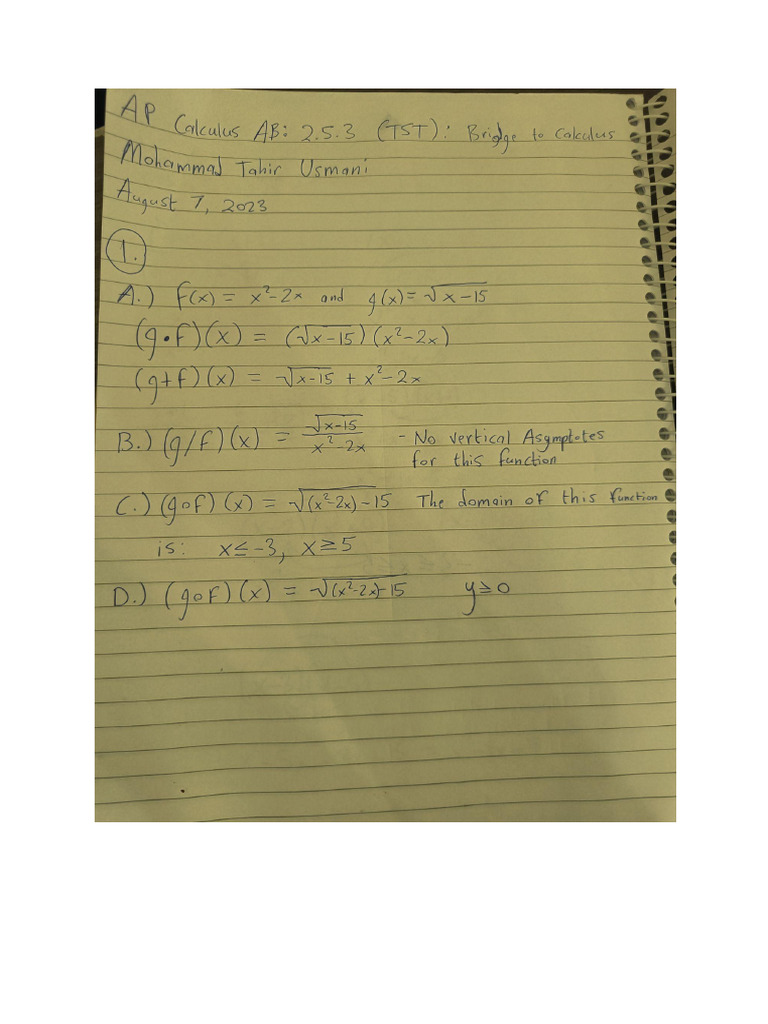 AP Calculus AB: 2.5.3 (TST): Bridge to Calculus
Mohammad Tahir Usmani
August 7, 2023
1.
A.) f(x) = x²-2x and g(x) = √(x-15)
(g•f)(x) = (√(x-15))(x²-2x)
(g+f)(x) = √(x-15) + x²-2x
B.) (g/f)(x) = √(x-15) / (x²-2x) - No vertical Asymptotes
for this function
C.) (g∘f)(x) = √((x²-2x)-15) The domain of this function
is: x≤-3, x≥5
D.) (g∘f)(x) = √((x²-2x)-15) y≥0